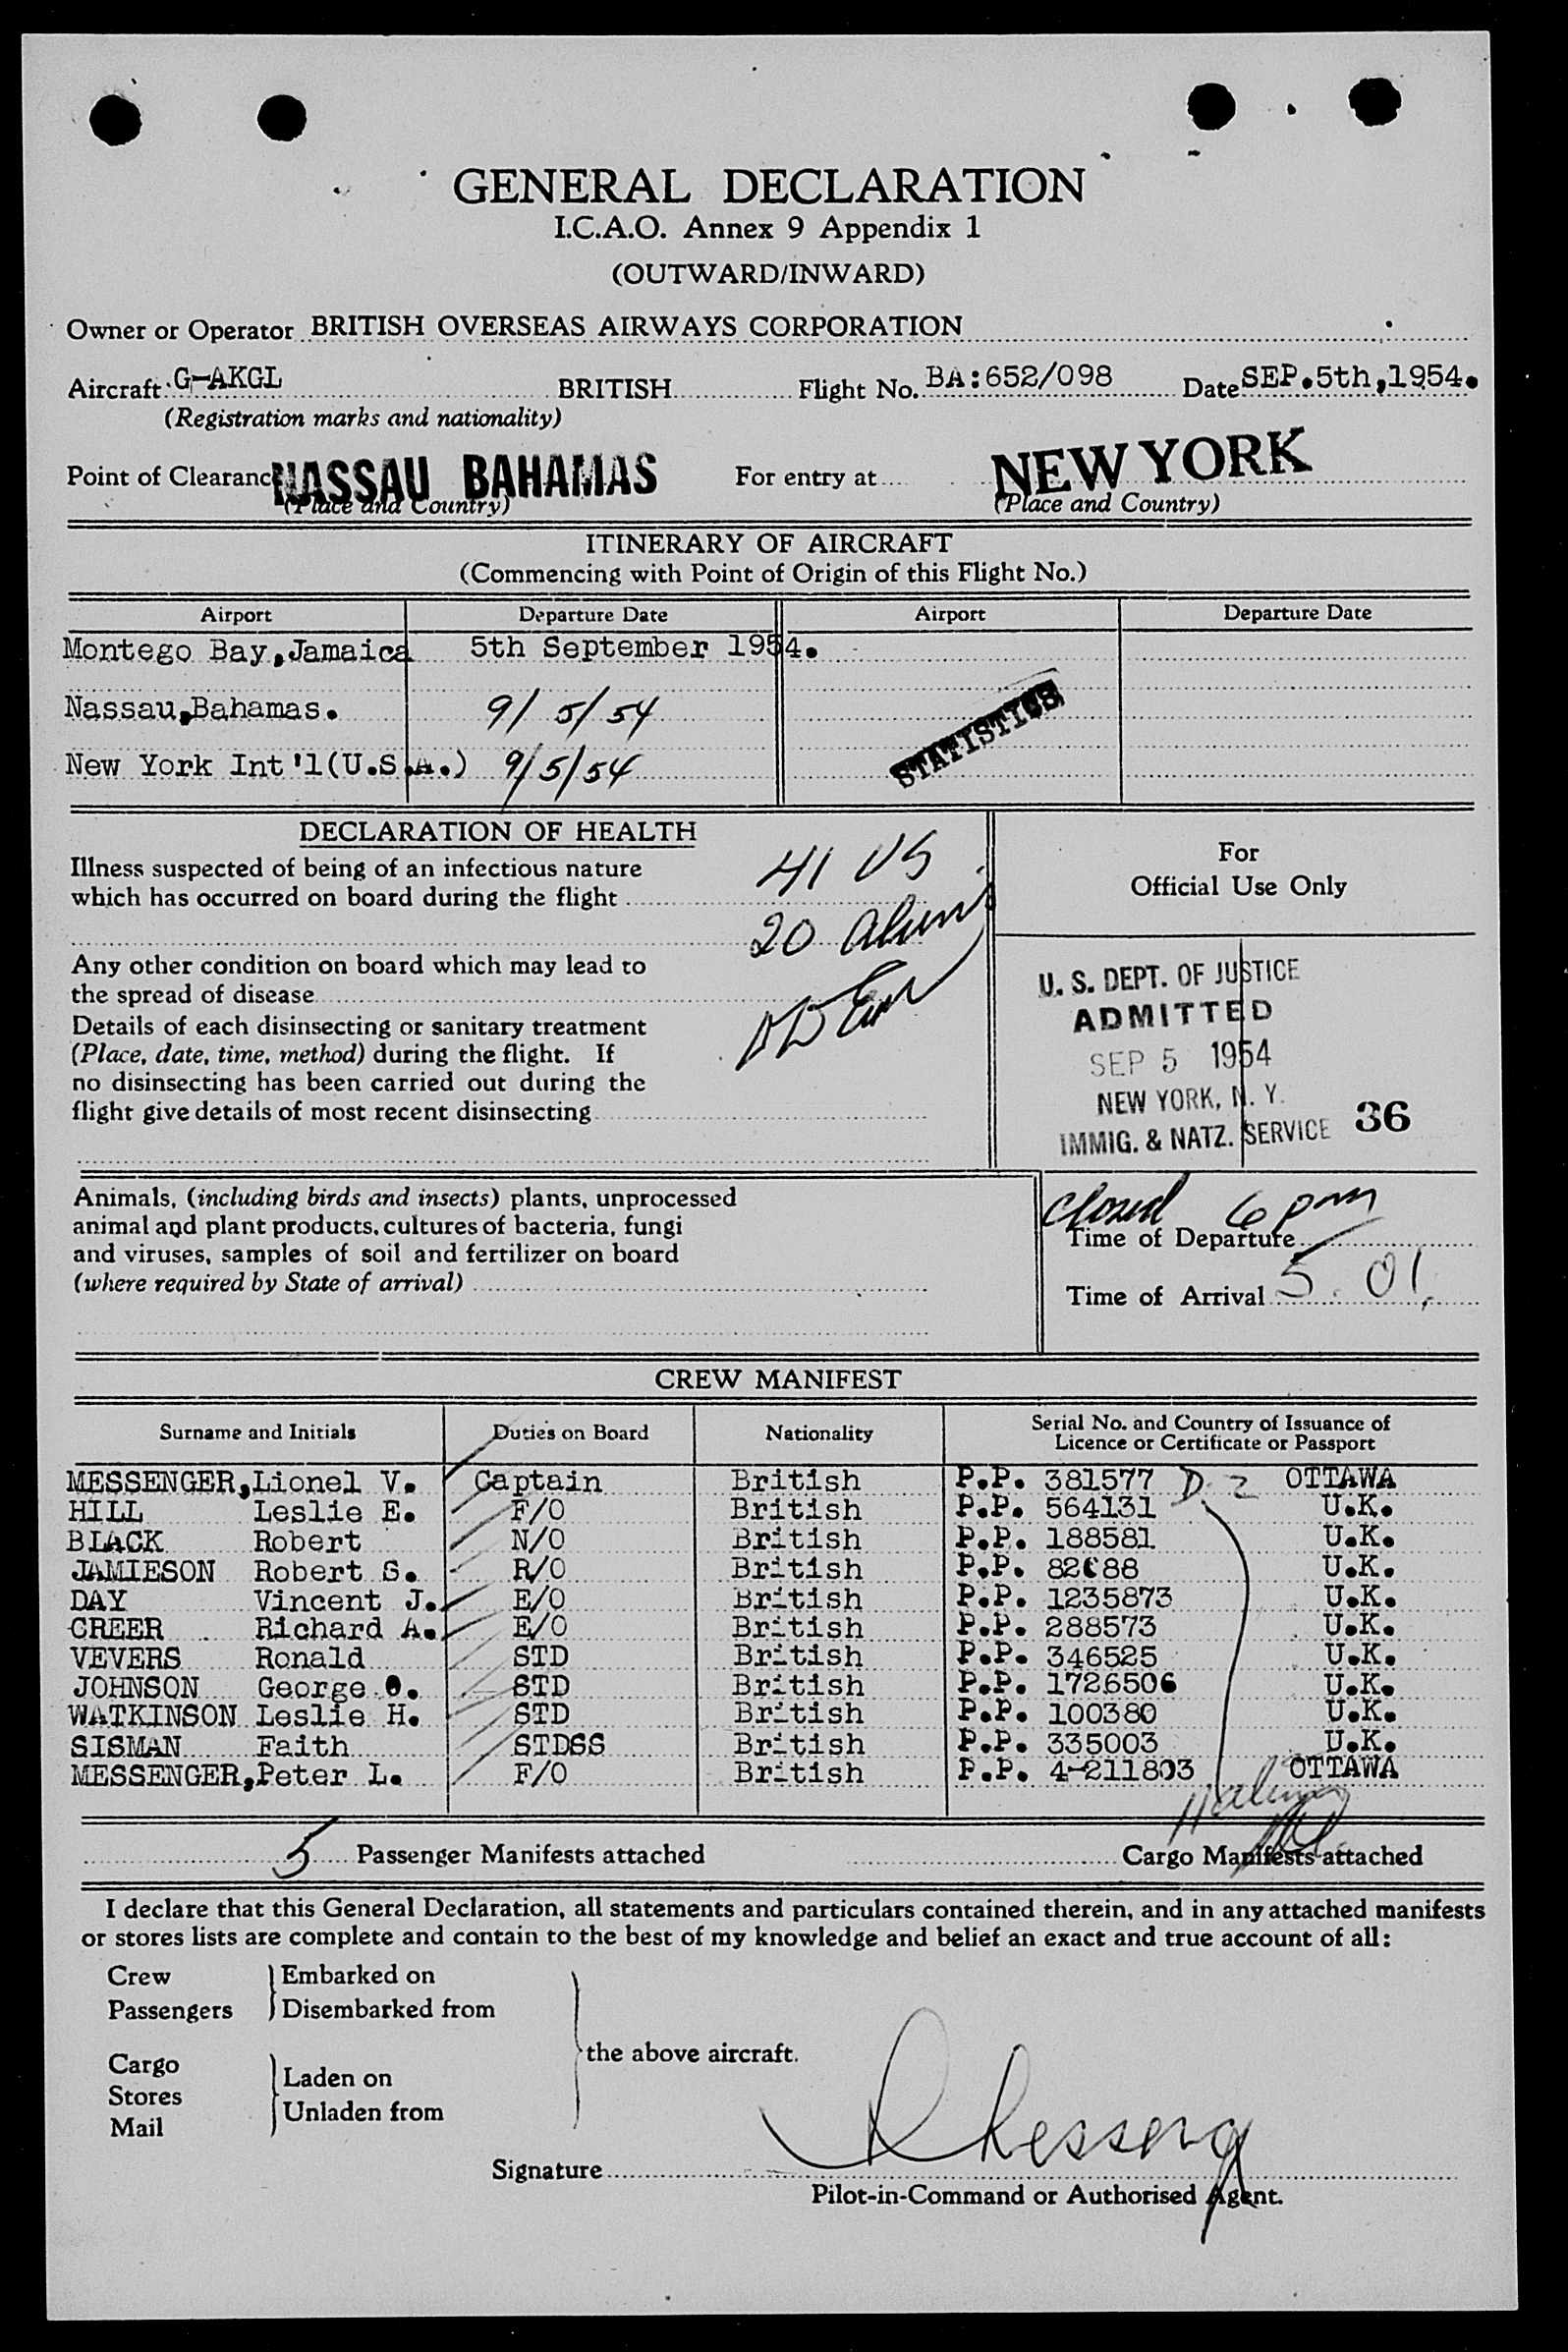 GENERAL DECLARATION
I.C.A.O. Annex 9 Appendix 1
(OUTWARD/INWARD)
Owner or Operator BRITISH OVERSEAS AIRWAYS CORPORATION
Aircraft G-AKGL BRITISH Flight No. BA:652/098 Date SEP.5th,1954.
(Registration marks and nationality)
Point of Clearance NASSAU BAHAMAS For entry at NEW YORK
(Place and Country) (Place and Country)
ITINERARY OF AIRCRAFT
(Commencing with Point of Origin of this Flight No.)
Airport Departure Date Airport Departure Date
Montego Bay,Jamaica 5th September 1954.
Nassau,Bahamas. 9/5/54
STATISTICS
New York Int'l(U.S.A.) 9/5/54
DECLARATION OF HEALTH
Illness suspected of being of an infectious nature
which has occurred on board during the flight
41 US
20 aliens
Any other condition on board which may lead to
the spread of disease
Details of each disinsecting or sanitary treatment
(Place, date, time, method) during the flight. If
no disinsecting has been carried out during the
flight give details of most recent disinsecting
For
Official Use Only
U. S. DEPT. OF JUSTICE
ADMITTED
SEP 5 1954
NEW YORK, N. Y.
IMMIG. & NATZ. SERVICE 36
Animals, (including birds and insects) plants, unprocessed
animal and plant products, cultures of bacteria, fungi
and viruses, samples of soil and fertilizer on board
(where required by State of arrival)
closed 6 pm
Time of Departure
Time of Arrival 5.01
CREW MANIFEST
Surname and Initials Duties on Board Nationality Serial No. and Country of Issuance of
Licence or Certificate or Passport
MESSENGER,Lionel V. Captain British P.P. 381577 D 2 OTTAWA
HILL Leslie E. F/O British P.P. 564131 U.K.
BLACK Robert N/O British P.P. 188581 U.K.
JAMIESON Robert S. R/O British P.P. U.K.
DAY Vincent J. E/O British P.P. 1235873 U.K.
CREER Richard A. E/O British P.P. 288573 U.K.
VEVERS Ronald STD British P.P. 346525 U.K.
JOHNSON George O. STD British P.P. 1726506 U.K.
WATKINSON Leslie H. STD British P.P. 100380 U.K.
SISMAN Faith STDSS British P.P. 335003 U.K.
MESSENGER,Peter L. F/O British P.P. 4-211803 OTTAWA
11 aliens
5 Passenger Manifests attached Cargo Manifests attached
I declare that this General Declaration, all statements and particulars contained therein, and in any attached manifests
or stores lists are complete and contain to the best of my knowledge and belief an exact and true account of all:
Crew Embarked on
Passengers Disembarked from
the above aircraft.
Cargo
Stores
Mail
Laden on
Unladen from
Signature
Pilot-in-Command or Authorised Agent.